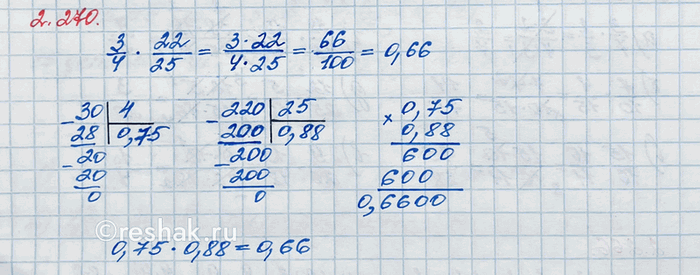 2.270.
3/4 · 22/25 = 3·22/4·25 = 66/100 = 0,66
30 | 4
− 28 | 0,75
20
− 20
0
220 | 25
− 200 | 0,88
200
− 200
0
0,75
× 0,88
600
600
0,6600
©reshak.ru
0,75 · 0,88 = 0,66